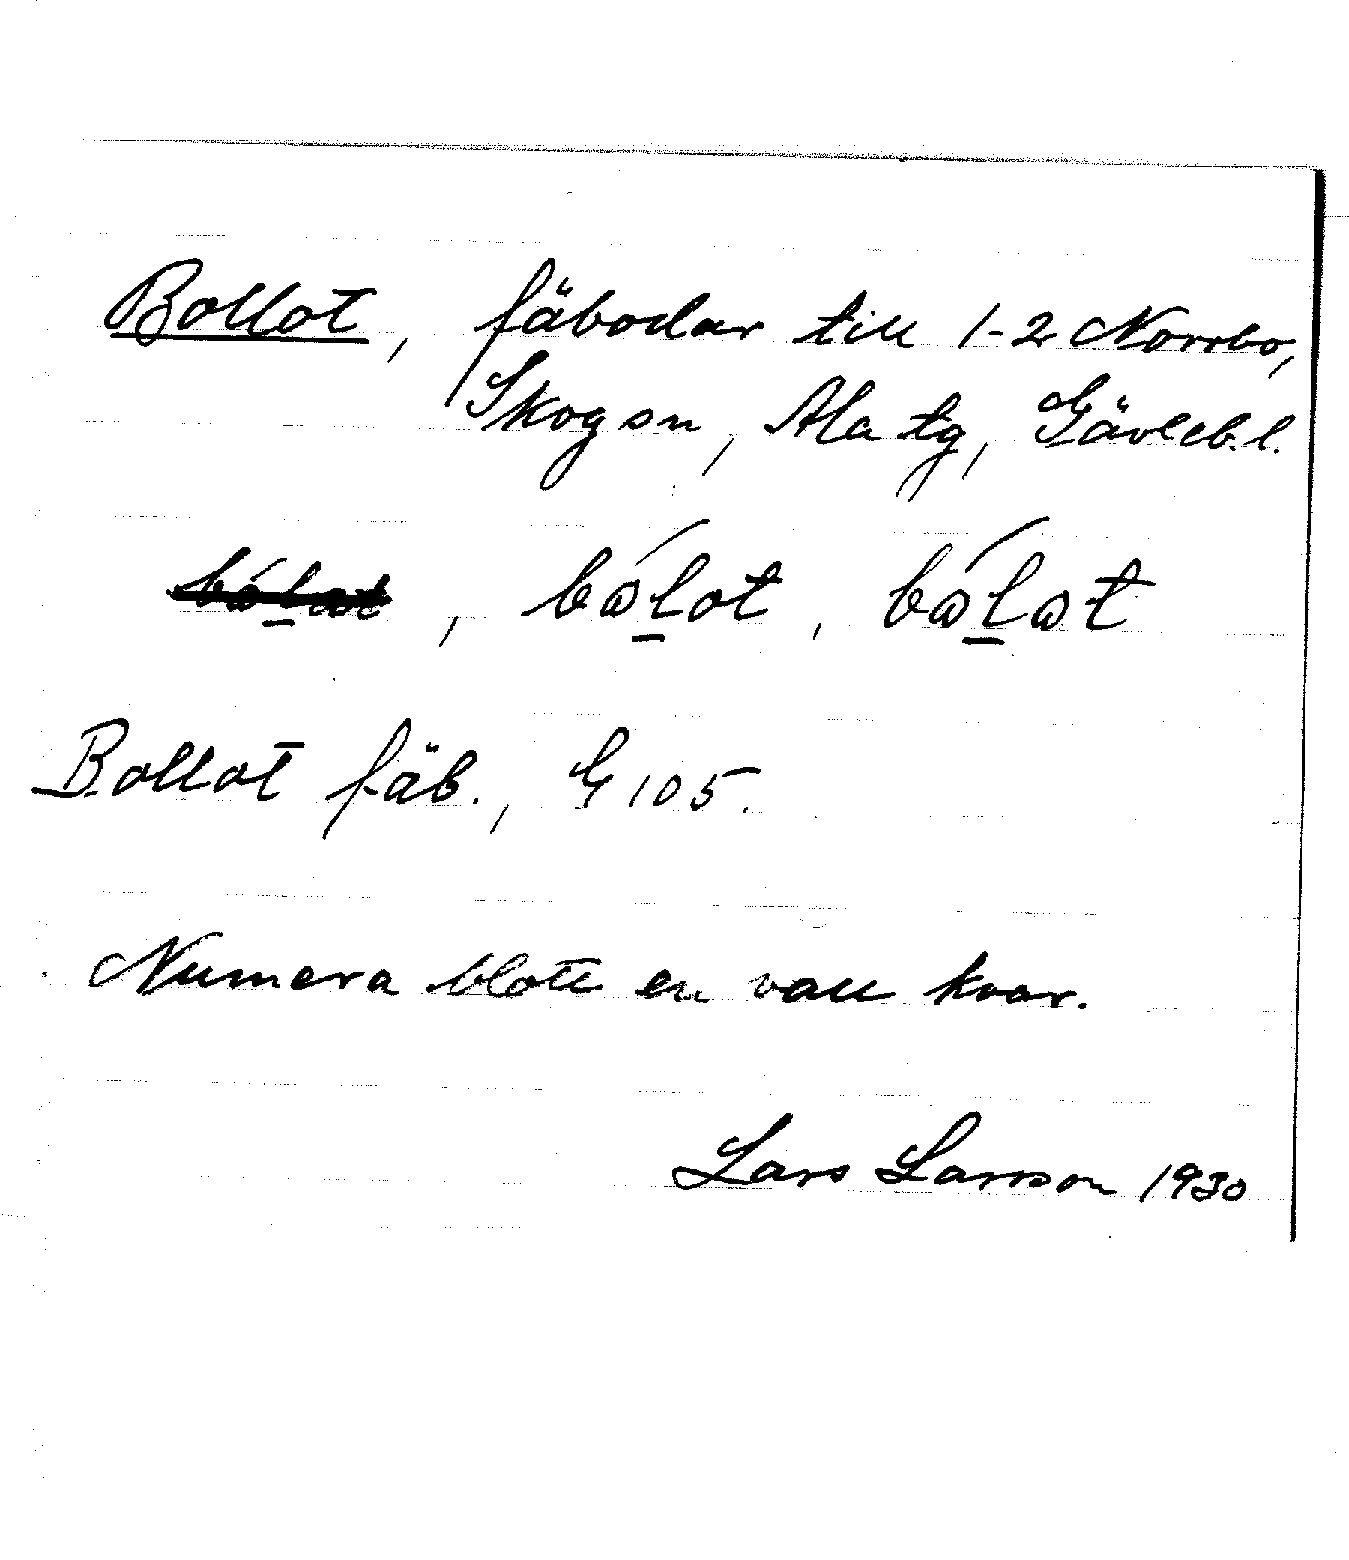 Bollot, fäbodar till 1-2 Norrbo,
Skogsn, Ala tg, Gävleb.l.
, bo̯lot, bo̯lot
Bollot fäb., G 105.
Numera blott en vall kvar.
Lars Larsson 1930